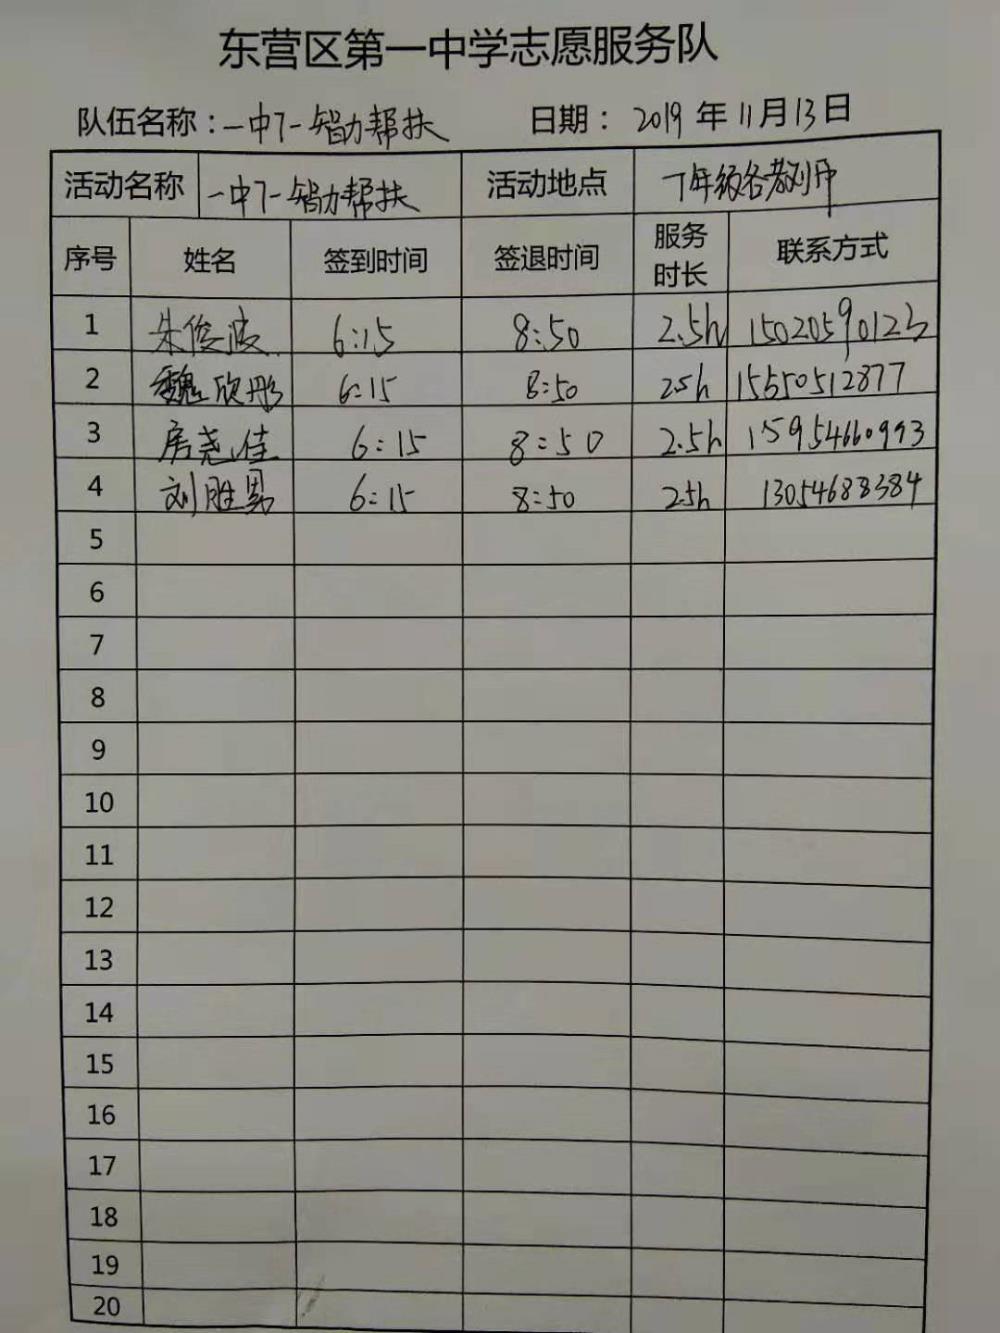 东营区第一中学志愿服务队
队伍名称：一中7一智力帮扶 日期： 2019 年 11 月 13 日
活动名称 一中7一智力帮扶 活动地点 7年级各教
序号 姓名 签到时间 签退时间 服务时长 联系方式
1 朱俊波 6:15 8:50 2.5h 15020590123
2 魏欣彤 6:15 8:50 2.5h 15550512877
3 房尧佳 6:15 8:50 2.5h 15954660993
4 刘胜男 6:15 8:50 2.5h 13054688384
5
6
7
8
9
10
11
12
13
14
15
16
17
18
19
20